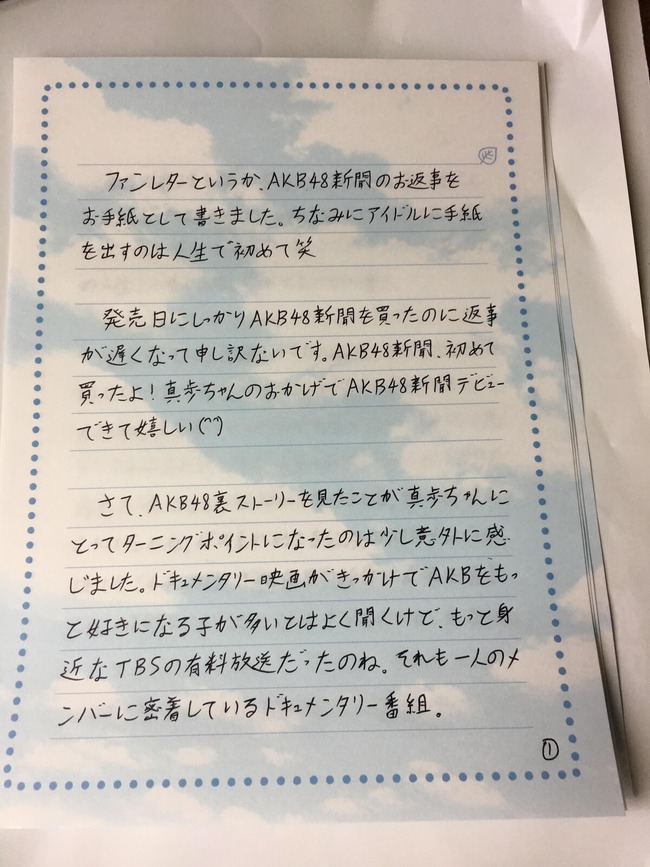 ファンレターというか、AKB48新聞のお返事を
お手紙として書きました。ちなみにアイドルに手紙
を出すのは人生で初めて笑
発売日にしっかりAKB48新聞を買ったのに返事
が遅くなって申し訳ないです。AKB48新聞、初めて
買ったよ！真歩ちゃんのおかげでAKB48新聞デビュー
できて嬉しい(^^)
さて、AKB48裏ストーリーを見たことが真歩ちゃんに
とってターニングポイントになったのは少し意外に感
じました。ドキュメンタリー映画がきっかけでAKBをもっ
と好きになる子が多いとはよく聞くけど、もっと身
近なTBSの有料放送だったのね。それも一人のメ
ンバーに密着しているドキュメンタリー番組。
①